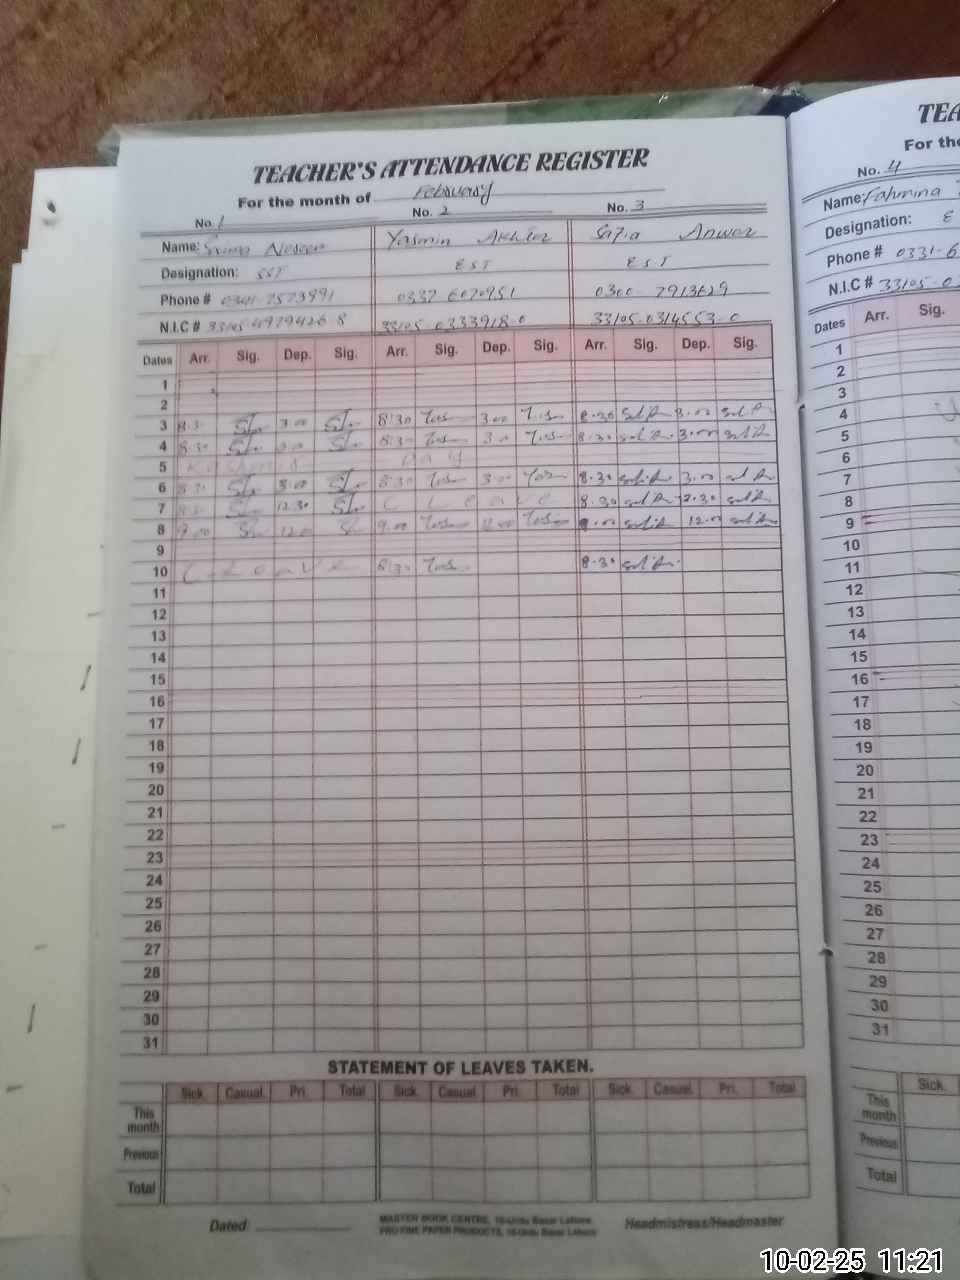 TEACHER'S ATTENDANCE REGISTER
For the month of February
No. 1 No. 2 No. 3
Name: Naseer Yasmin Akhter Safia Anwer
Designation: SST EST EST
Phone # 0341-7573991 0337 6020951 0300-7913629
N.I.C # 33105-0333918-0 33105-0314553-0
Dates Arr. Sig. Dep. Sig. Arr. Sig. Dep. Sig. Arr. Sig. Dep. Sig.
1
2
3 8.30 3.00 8.30 3.00 8.30 3.00
4 8.30 3.00 8.30 3.00 8.30 3.00
5 Kashmir Day
6 8.30 3.00 8.30 3.00 8.30 3.00
7 8.30 12.30 C Leave 8.30 12.30
8 9.00 12.00 9.00 12.00 9.00 12.00
9
10 C-Leave 8.30 8.30
11
12
13
14
15
16
17
18
19
20
21
22
23
24
25
26
27
28
29
30
31
STATEMENT OF LEAVES TAKEN.
Sick. Casual. Pri. Total Sick. Casual. Pri. Total Sick. Casual. Pri. Total
This month
Previous
Total
Dated: MASTER BOOK CENTRE, 16-Urdu Bazar Lahore. Headmistress/Headmaster
PRO FINE PAPER PRODUCTS, 16-Urdu Bazar Lahore
TEA
For the
No. 4
Name: Fahmina
Designation: E
Phone # 0331-6
N.I.C # 33105-0
Dates Arr. Sig.
1
2
3
4
5
6
7
8
9
10
11
12
13
14
15
16
17
18
19
20
21
22
23
24
25
26
27
28
29
30
31
Sick.
This month
Previous
Total
10-02-25 11:21